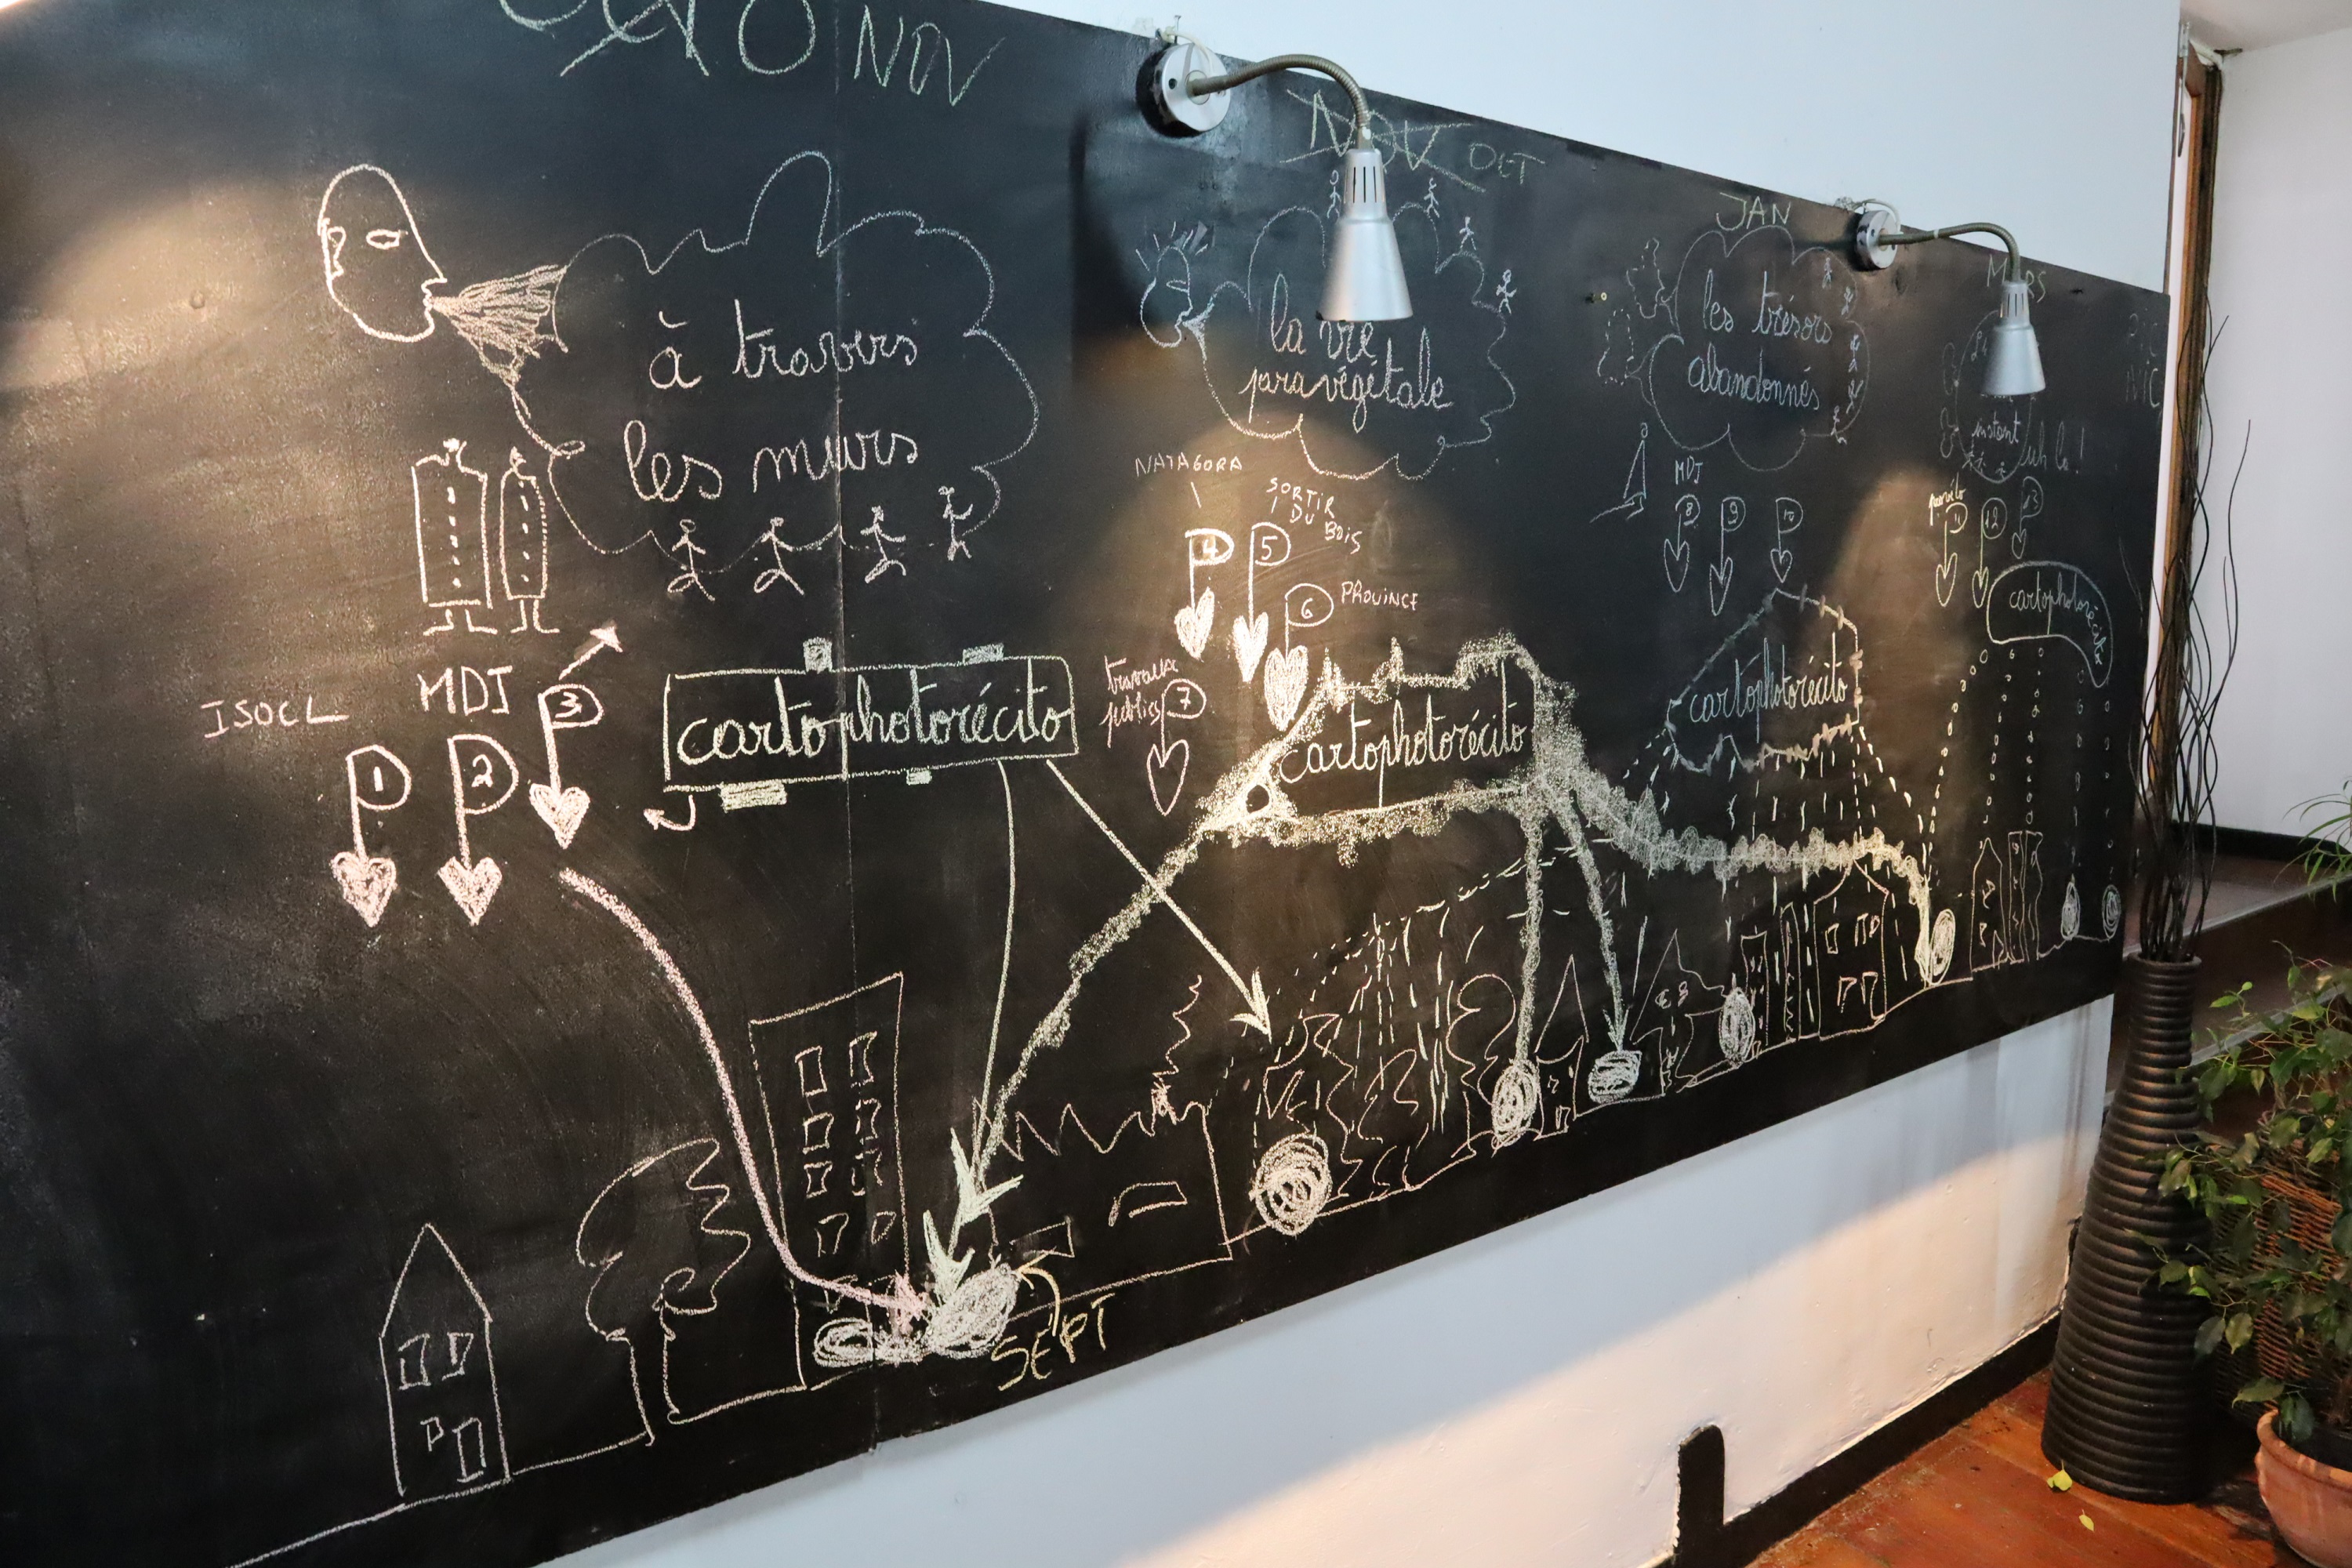 NOV
à travers
les murs
ISOCL
MDJ
1
2
3
cartophotorécito
SEPT
NOV OCT
la vie
paravégétale
NATAGORA
SORTIR
DU
BOIS
4
5
6
PROVINCE
travaux
publics
7
cartophotorécito
JAN
les trésors
abandonnés
MDJ
8
9
10
cartophotorécito
instant
uh la!
11
12
13
cartophotorécito